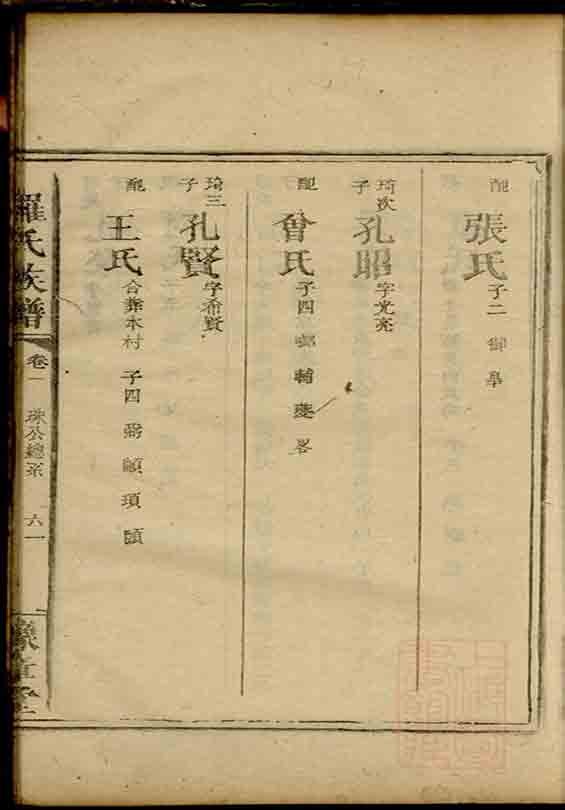 配 張氏 子二 御 皐
琦次子 孔昭 字光亮
配 曾氏 子四 輔 夔 畧
琦三子 孔賢 字希賢
配 王氏 合葬本村 子四 弼 顧 項 頤
羅氏族譜 卷一 珠公總系 六一 豫章堂